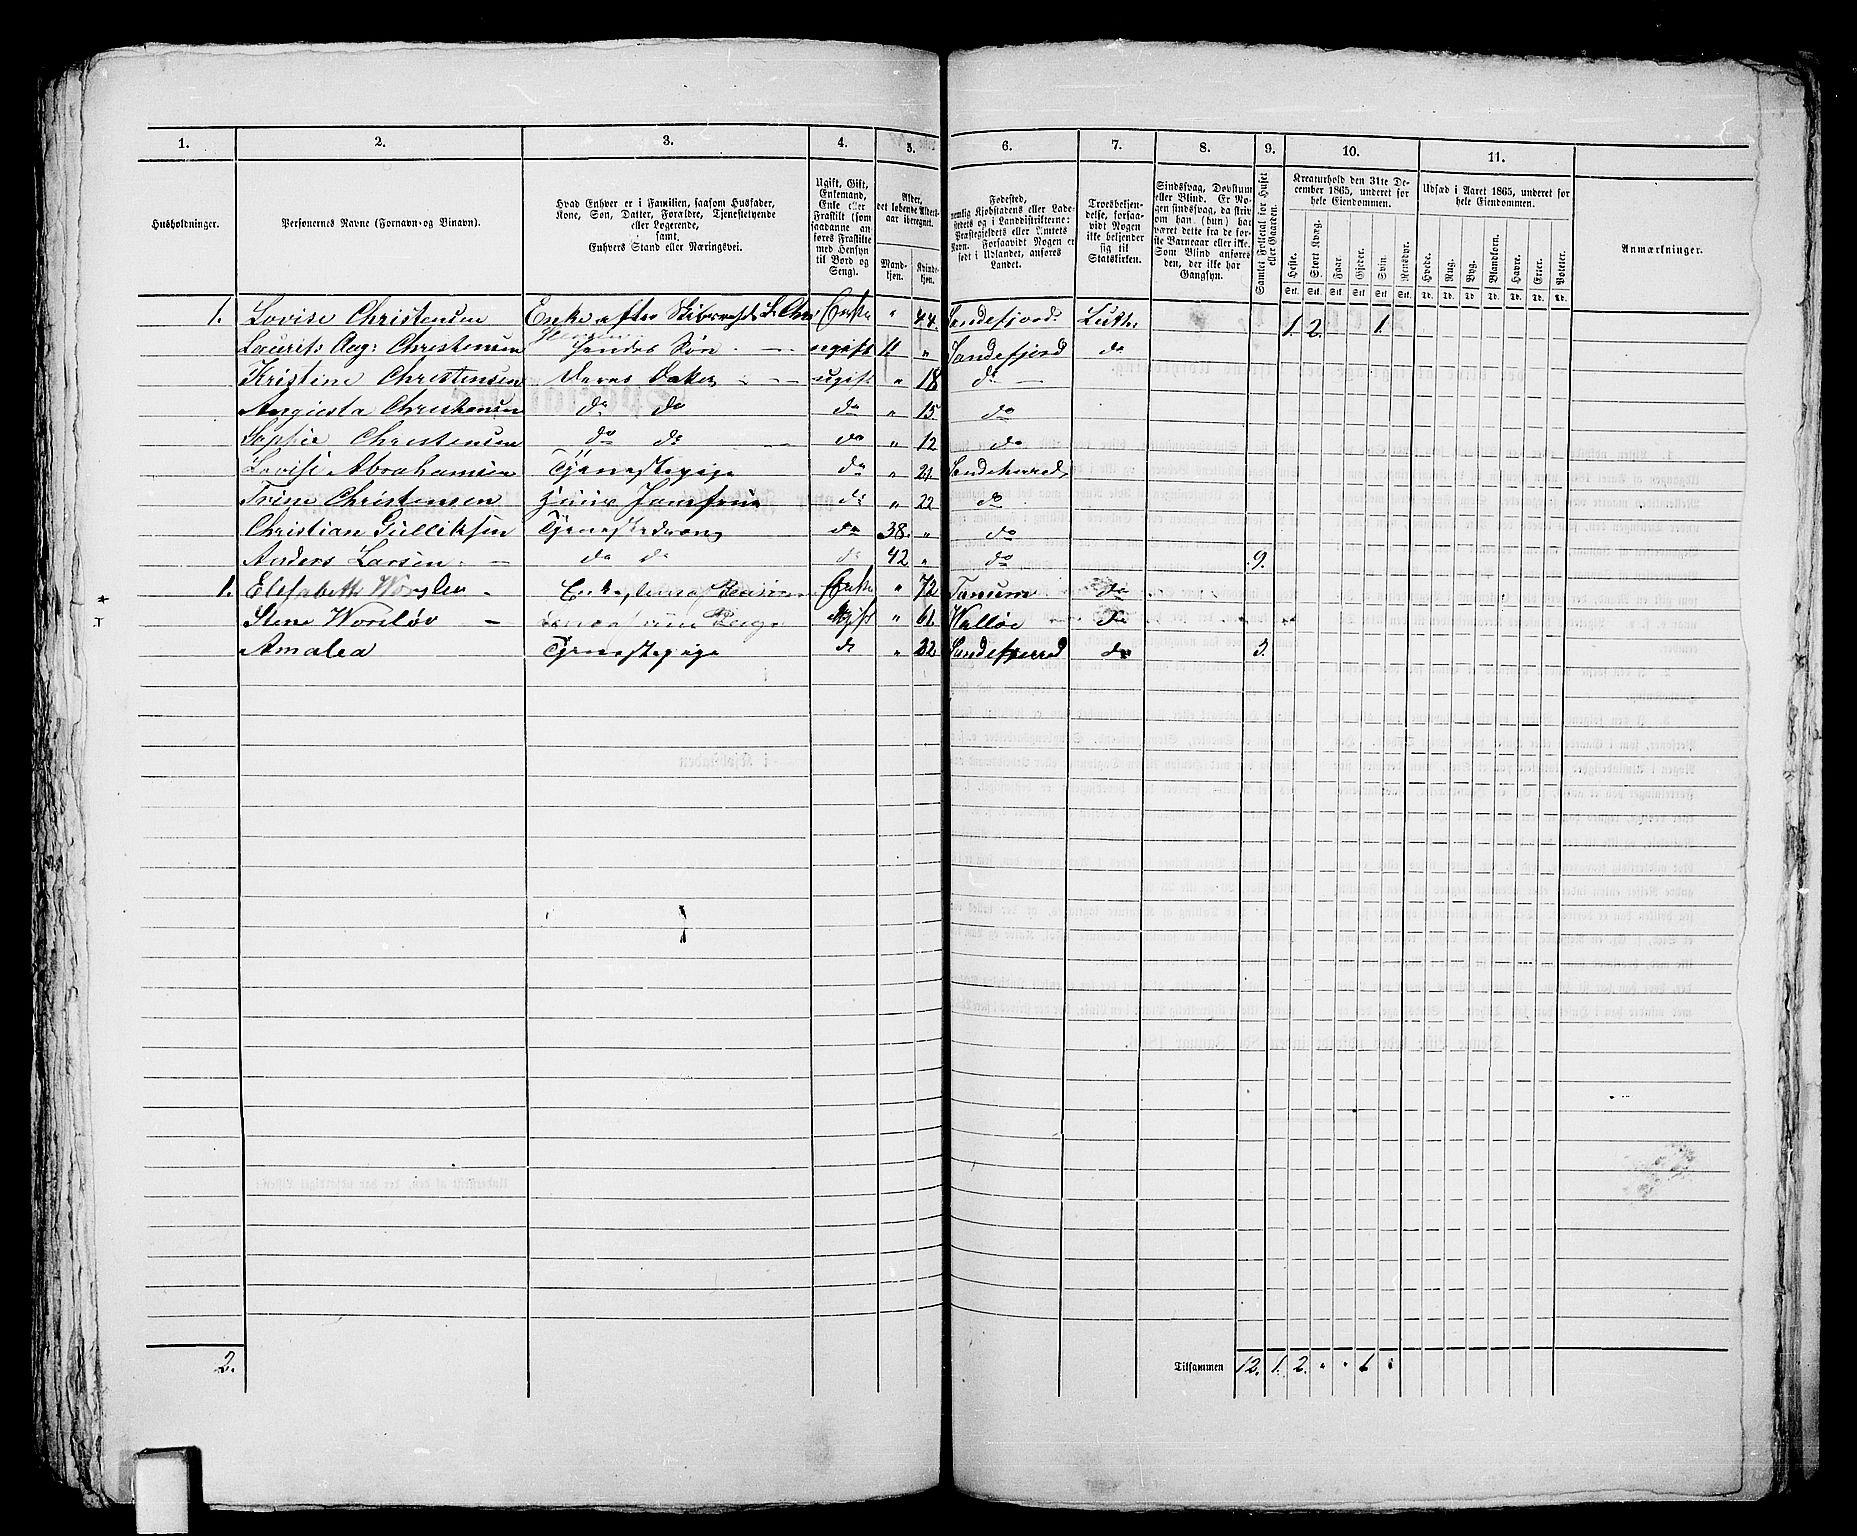 1. 2. 3. 4. 5. 6. 7. 8. 9. 10. 11.
Husholdninger.
Personernes Navne (Fornavn og Binavn).
Hvad Enhver er i Familien, saasom Husfader,
Kone, Søn, Datter, Forældre, Tjenestetyende
eller Logerende,
samt
Enhvers Stand eller Næringsvei.
Ugift, Gift,
Enkemand,
Enke eller
Fraskilt (som
saadanne an-
føres Fraskilte
med Hensyn
til Bord og
Seng).
Alder,
det løbende Alders-
aar iberegnet.
Mand-
kjøn.
Kvinde-
kjøn.
Fødested,
nemlig Kjøbstadens eller Lade-
stedets og i Landdistrikterne:
Præstegjeldets eller Amtets
Navn. Forsaavidt Nogen er
født i Udlandet, anføres
Landet.
Troesbekjen-
delse, forsaa-
vidt Nogen
ikke bekjender
sig til
Statskirken.
Sindssvag, Døvstum
eller Blind. Er No-
gen sindssvag, da skriv
om han (hun) har
været dette fra de før-
ste Barneaar eller ikke.
Som Blind anføres
den, der ikke har
Gangsyn.
Samlet Folketal for Huset
eller Gaarden.
Kreaturhold den 31te De-
cember 1865, underet for
hele Eiendommen.
Heste. Stort Kvæg. Faar. Gjeder. Svin. Rensdyr.
Stk. Stk. Stk. Stk. Stk. Stk.
Udsæd i Aaret 1865, underet for
hele Eiendommen.
Hvede. Rug. Byg. Blandkorn. Havre. Erter. Poteter.
Td. Td. Td. Td. Td. Td. Td.
Anmærkninger.
1. Lovise Christensen Enke efter Enke " 44. Sandefjord. Luth. 1. 2. 1.
Laurits Aug: Christensen Hendes Søn ugift 11. " Sandefjord do
Kristine Christensen Deres Datter ugift " 18 do
Augusta Christensen do do do " 15. do
Sophie Christensen do do do " 12 do
Lovise Abrahamsen Tjenestepige do " 21. Sandeherred
Trine Christensen Huus Jomfrue do " 22 do
Christian Gulliksen Tjenestedreng do 38. " do
Anders Larsen do do do 42 " do 9.
1. Elisabeth Enke, Enke " 72 Tanum do
Stene Worsløv Ugift " 61. Walløe do
Amalea Tjenestepige do " 22. Sandeherred do 3.
2. Tilsammen 12. 1. 2. " " 1 "